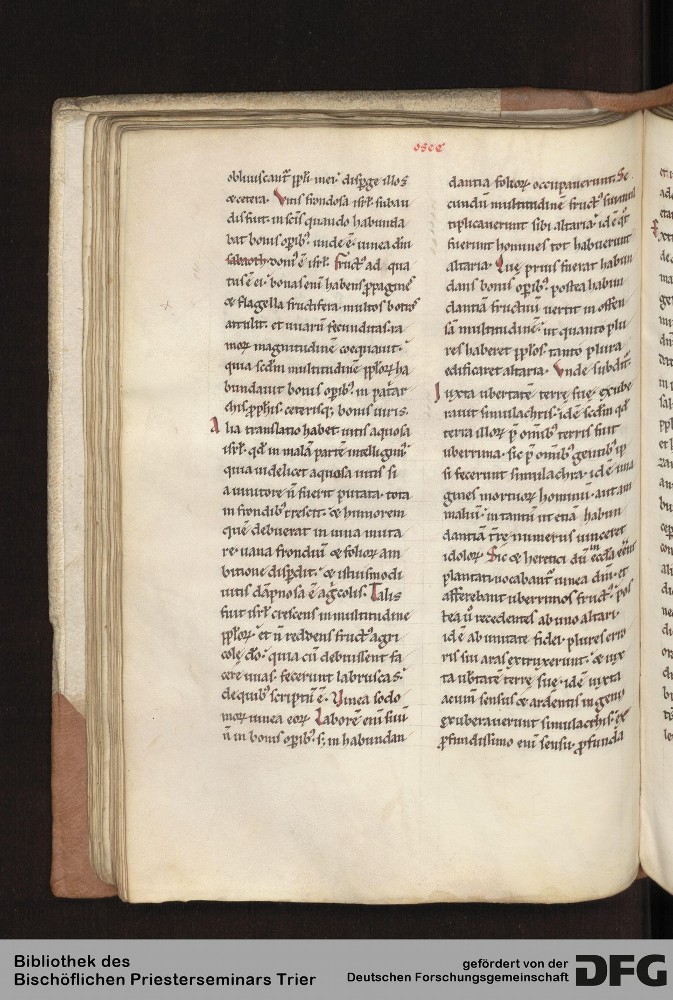 osee
obliuiscant᷑ ppl̄i mei᷒ disp̱ge illos
& cetera. Vitis frondosa isrl̄ fubau
dis fiut᷒ in sc̄is quando habunda
bat bonis opib᷒. unde ē. uinea dn̄i
sabaoth. dom᷒ ē isrl̄. Fruct᷒ ad qua
tus ē ei᷒ bonas eni habens p̱pagines
& flagella fructifera᷒ multos botros
attulit᷒ et uuarū fecunditas. ra
moꝝ magnitudinē coequauit.
quia scdm̄ multitudinē pploꝝ ha
bundauit bonis opib᷒. in patar
chis. pphis. ceterisq; bonis uiris.
Alia translatio habet. uitis aquosa
isrl̄. qd̄ in malā partē intelligim᷒.
quia uidelicet aquosa uitis si
a uinitore n̄ fuerit putata. tota
in frondib᷒ crescit. & humorem
quē debuerat in uina muta
re. uana frondiū & folioꝝ am
bitione disp̱dit. & istiusmodi
uitis dāpnosa ē ag̊colis. Talis
fuit isrl̄ crescens in multitudine
pploꝝ. et n̄ reddens fruct᷒ agri
colę dō. quia cū debuissent fa
cere uuas. fecerunt labruscas.
de quib᷒ scriptū ē. Vinea sodo
moꝝ uinea eoꝝ. Laborē eni
n̄ in bonis opib᷒. s; in habundan
dantia folioꝝ occupauerunt. Se
cundū multitudinē fruct᷒ sui mul
tiplicauerunt sibi altaria. id ē qt̄
fuerunt homines tot habuerunt
altaria. Que prius fuerat habun
dans bonis opib᷒. postea habun
dantiā fructuū uertit in offen
sā multitudinē. ut quanto plu
res haberet pplos. tanto plura
edificaret altaria. Vnde subdit᷒.
Iuxta ubertatē terrę suę exube
rauit simulachris. id ē scdm̄ qd̄
terra illoꝝ p̄ om̄ib᷒ terris fuit
uberrima. sic p̄ om̄ib᷒ gentib᷒ ip
si fecerunt simulachra. id ē ima
gines mortuoꝝ hominū. aut am
maliū. in tantū ut etiā habun
dantiā tr̄re numerus uinceret
idoloꝝ. Sic & heretici dū in ecclā eius
plantati uocabant᷑ uinea dn̄i. et
afferebant uberrimos fruct᷒. pos
tea ů recedentes ab uno altari.
id ē ab unitate fidei. plures erro
ris sui aras extruxerunt. & iux
ta ubtatē terrę suę. id ē iuxta
acum̄ sensus & ardentis ingenii
exuberauerunt simulacchis. Ex
p̱fundissimo eni sensu. p̱funda
Bibliothek des
Bischöflichen Priesterseminars Trier
gefördert von der
Deutschen Forschungsgemeinschaft
DFG